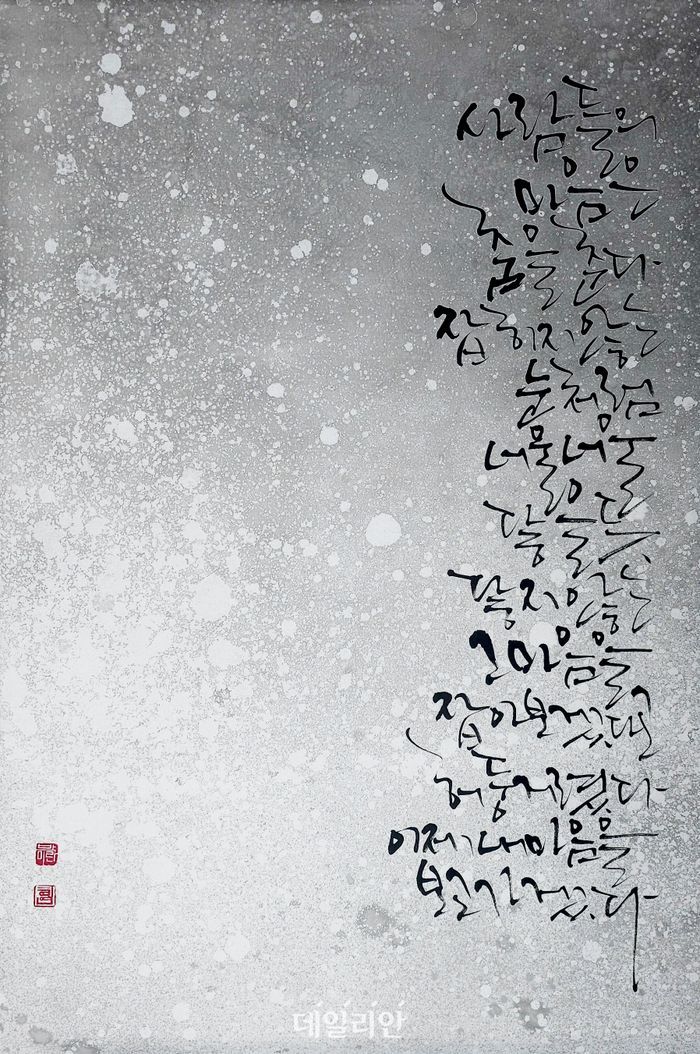 사람들의
마음은
춤을 춘다
잡히지 않는
눈처럼
너울너울
닿을 듯
닿지 않는
그 마음을
잡아보겠다고
허둥거렸다
이제 내 마음을
가겠다
데일리안